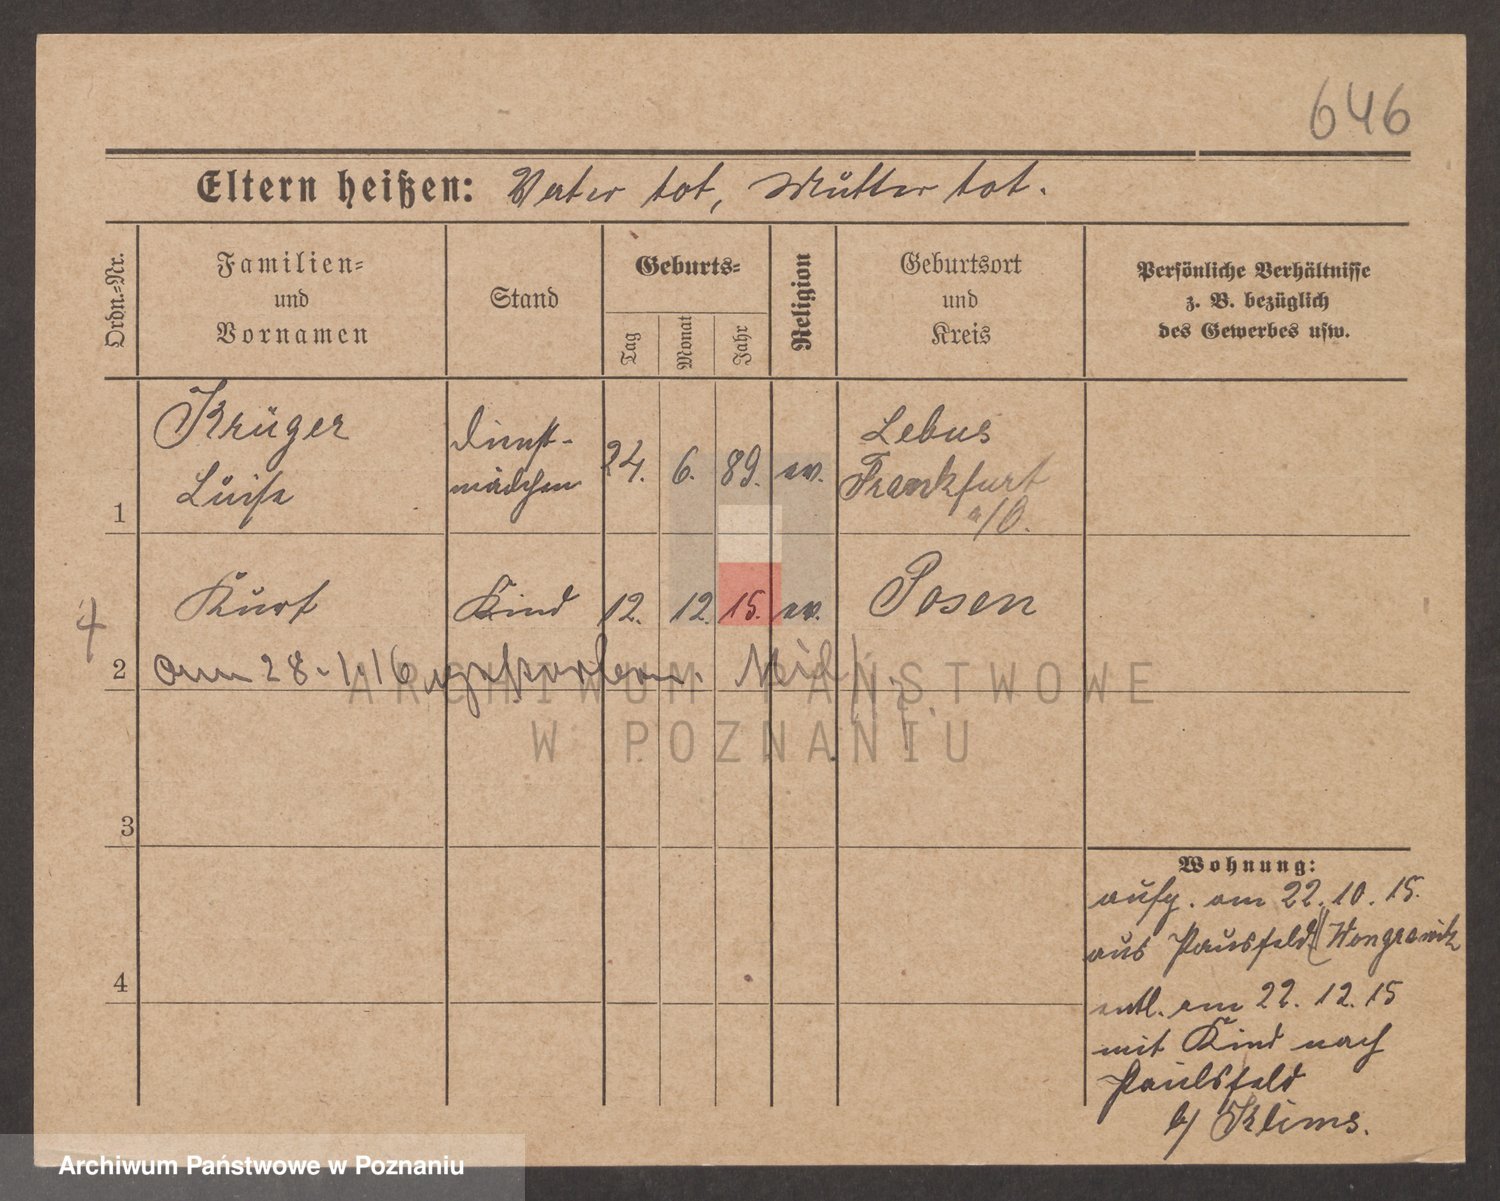 646
Eltern heißen: Vater tot, Mutter tot.
Ordn.-Nr.
Familien-
und
Vornamen
Stand
Geburts-
Tag
Monat
Jahr
Religion
Geburtsort
und
Kreis
Persönliche Verhältnisse
z. B. bezüglich
des Gewerbes usw.
1
Krüger
Luise
Dienst-
mädchen
24. 6. 89. ev.
Lebus
Frankfurt
a/O.
2
Kurt Kind 12. 12. 15. ev. Posen
am 28. 1. 16 gestorben.
3
4
Wohnung:
aufg. am 22. 10. 15.
aus Pausfeld Wongrowitz
entl. am 22. 12. 15
mit Kind nach
Paulsfeld
b/ Klims.
ARCHIWUM PAŃSTWOWE
W POZNANIU
Archiwum Państwowe w Poznaniu